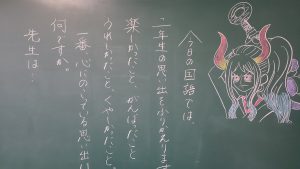 今日の国語では、
二年生の思い出をふりかえります
楽しかったこと、がんばったこと
うれしかったこと、くやしかったこと。
一番、心にのこっている思い出は
何ですか。
先生は…